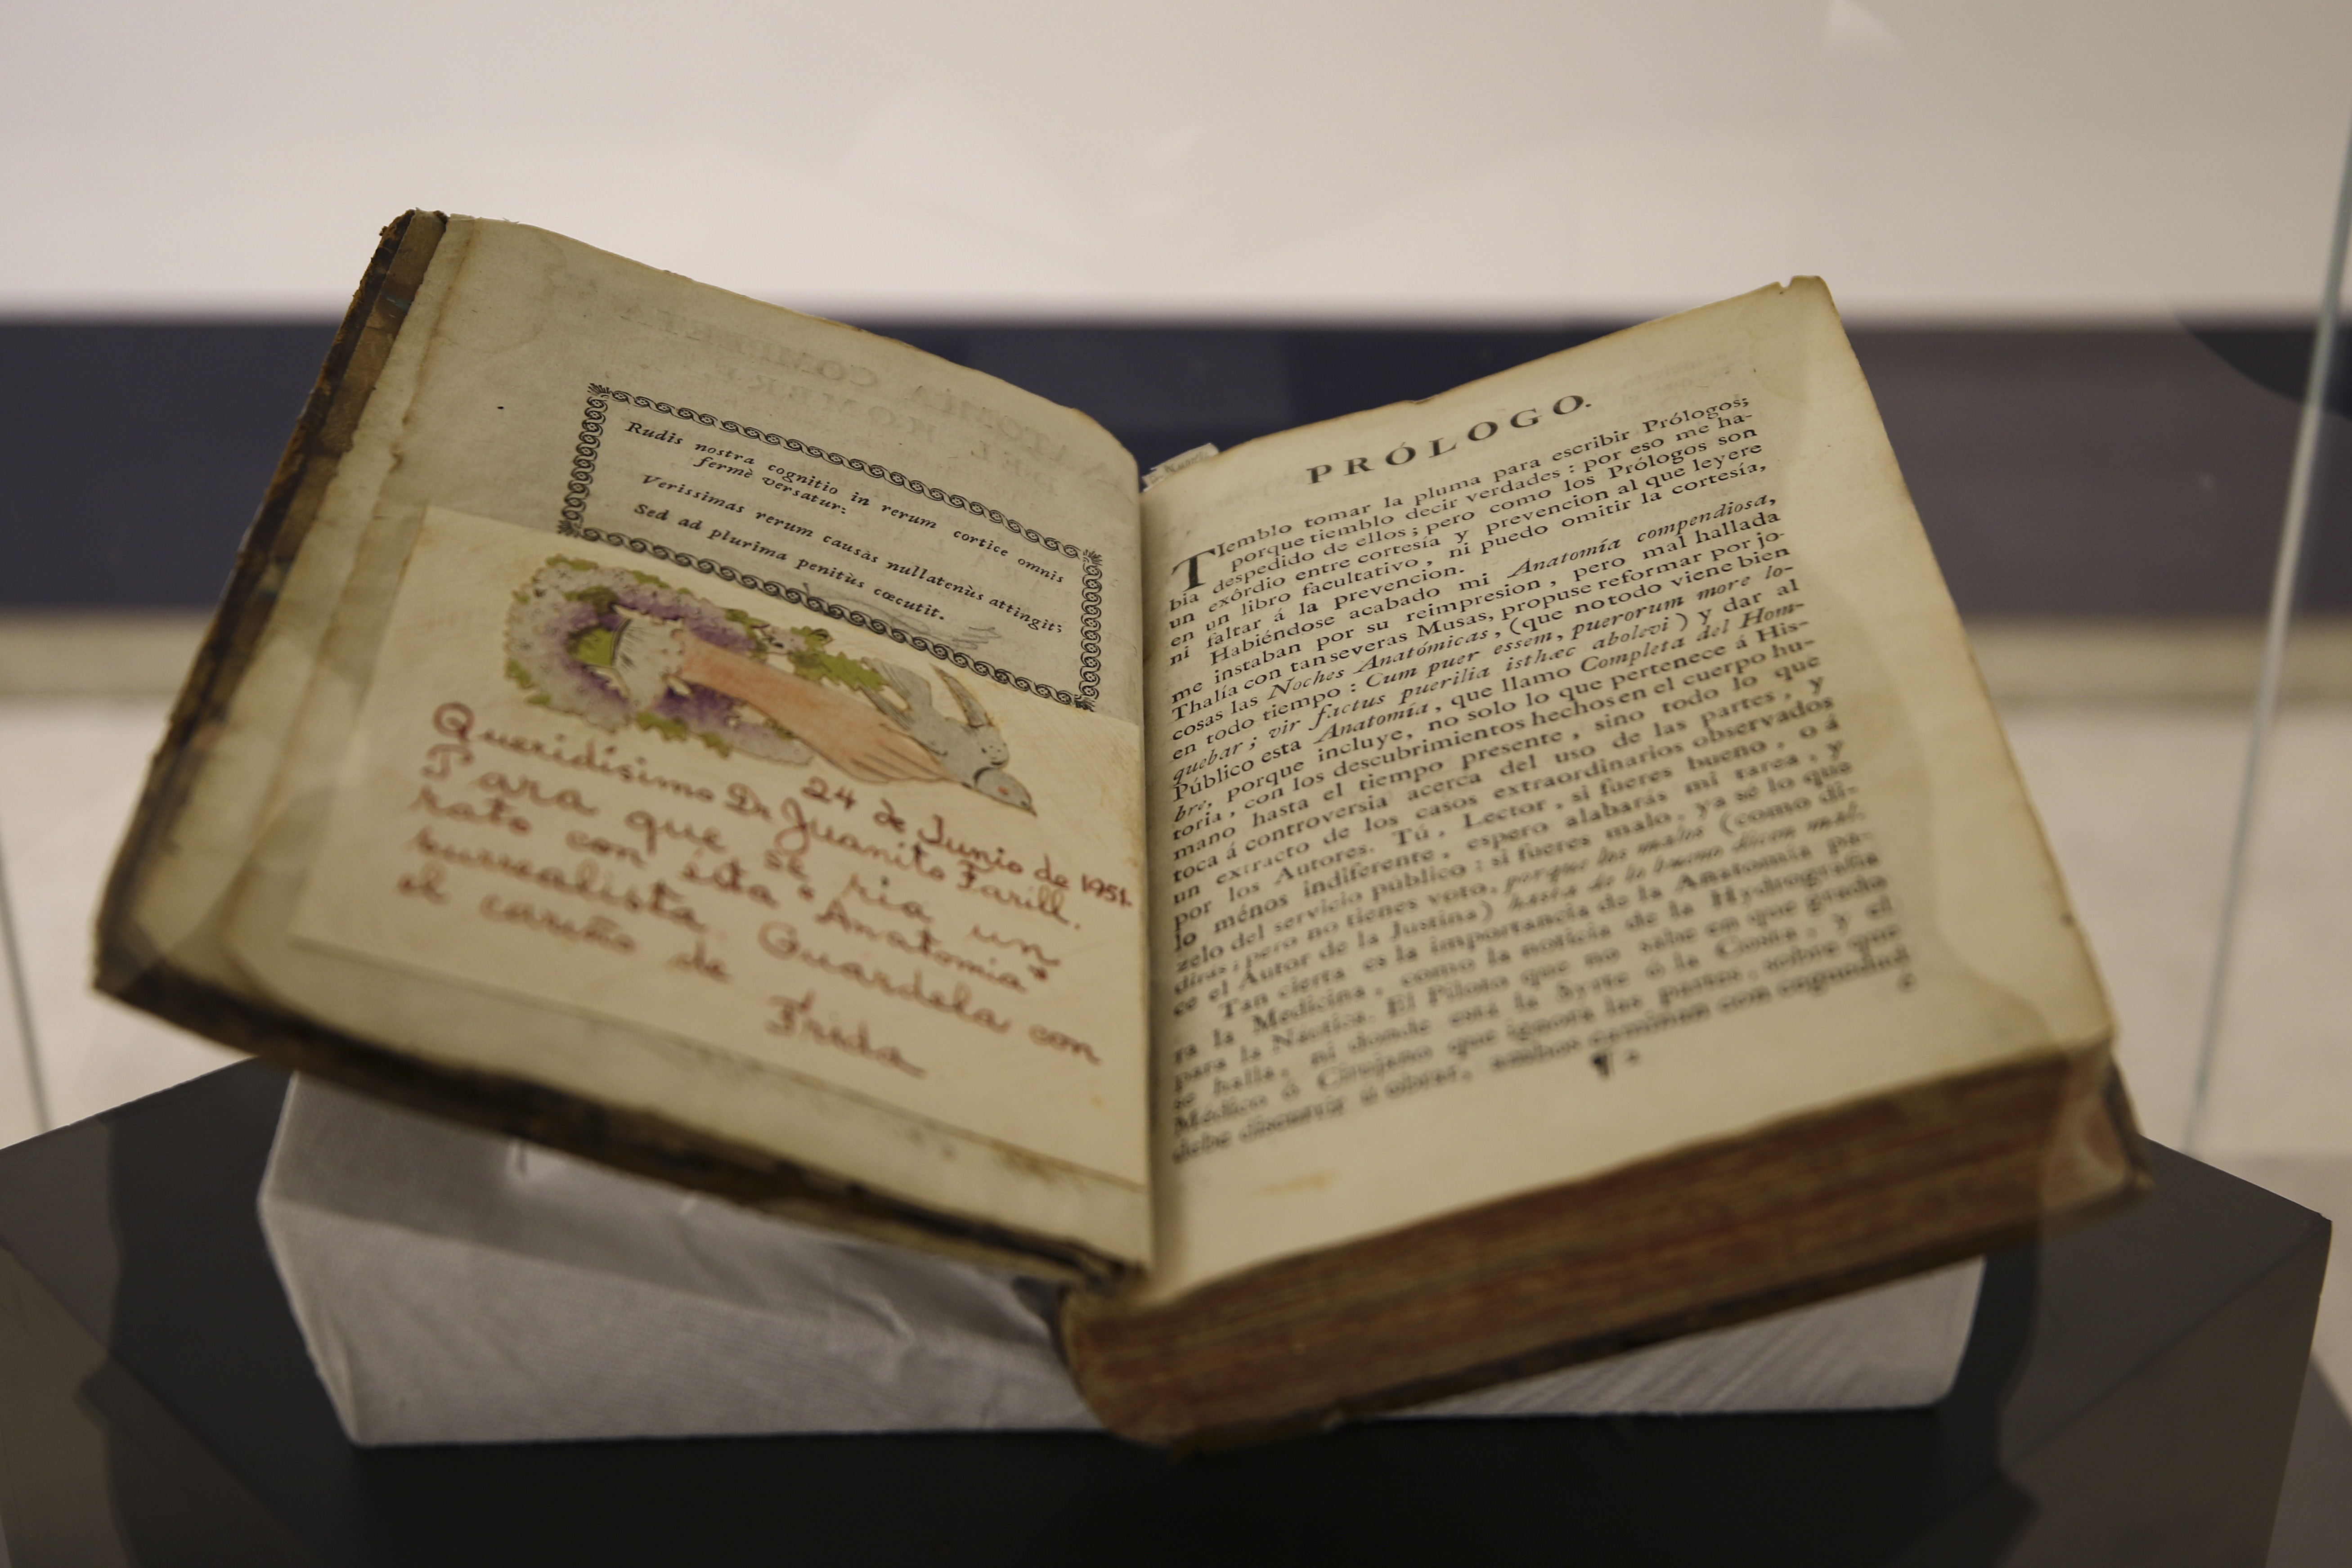 Rudis nostra cognitio in rerum cortice omnis
fermè versatur:
Verissimas rerum causàs nullatenùs attingit;
Sed ad plurima penitùs cœcutit.
24 de Junio de 1951.
Queridísimo Dr Juanito Farill.
Para que se ria un
rato con ésta "Anatomia"
surrealista. Guardela con
el cariño de
Frida
PRÓLOGO.
Tiemblo tomar la pluma para escribir Prólogos;
porque tiemblo decir verdades: por eso me ha-
bia despedido de ellos; pero como los Prólogos son
un exórdio entre cortesía y prevencion al que leyere
en un libro facultativo, ni puedo omitir la cortesía,
ni faltar á la prevencion.
Habiéndose acabado mi Anatomía compendiosa,
me instaban por su reimpresion, pero mal hallada
Thalía con tan severas Musas, propuse reformar por jo-
cosas las Noches Anatómicas, (que no todo viene bien
en todo tiempo: Cum puer essem, puerorum more lo-
quebar; vir factus puerilia isthæc abolevi) y dar al
Público esta Anatomía, que llamo Completa del Hom-
bre, porque incluye, no solo lo que pertenece á His-
toria, con los descubrimientos hechos en el cuerpo hu-
mano hasta el tiempo presente, sino todo lo que
toca á controversia acerca del uso de las partes, y
un extracto de los casos extraordinarios observados
por los Autores. Tú, Lector, si fueres bueno, o á
lo ménos indiferente, espero alabarás mi tarea, y
zelo del servicio público: si fueres malo, ya sé lo que
dirás; pero no tienes voto, porque los malos (como di-
ce el Autor de la Justina) hasta de lo bueno dicen mal.
Tan cierta es la importancia de la Anatomía pa-
ra la Medicina, como la noticia de la Hydrografía
para la Náutica. El Piloto que no sabe en que grado
se halla, ni donde está la Syrte ó la Costa, y el
Médico ó Cirujano que ignora las partes, sobre que
debe discurrir ó obrar, ambos caminan con
¶ 2